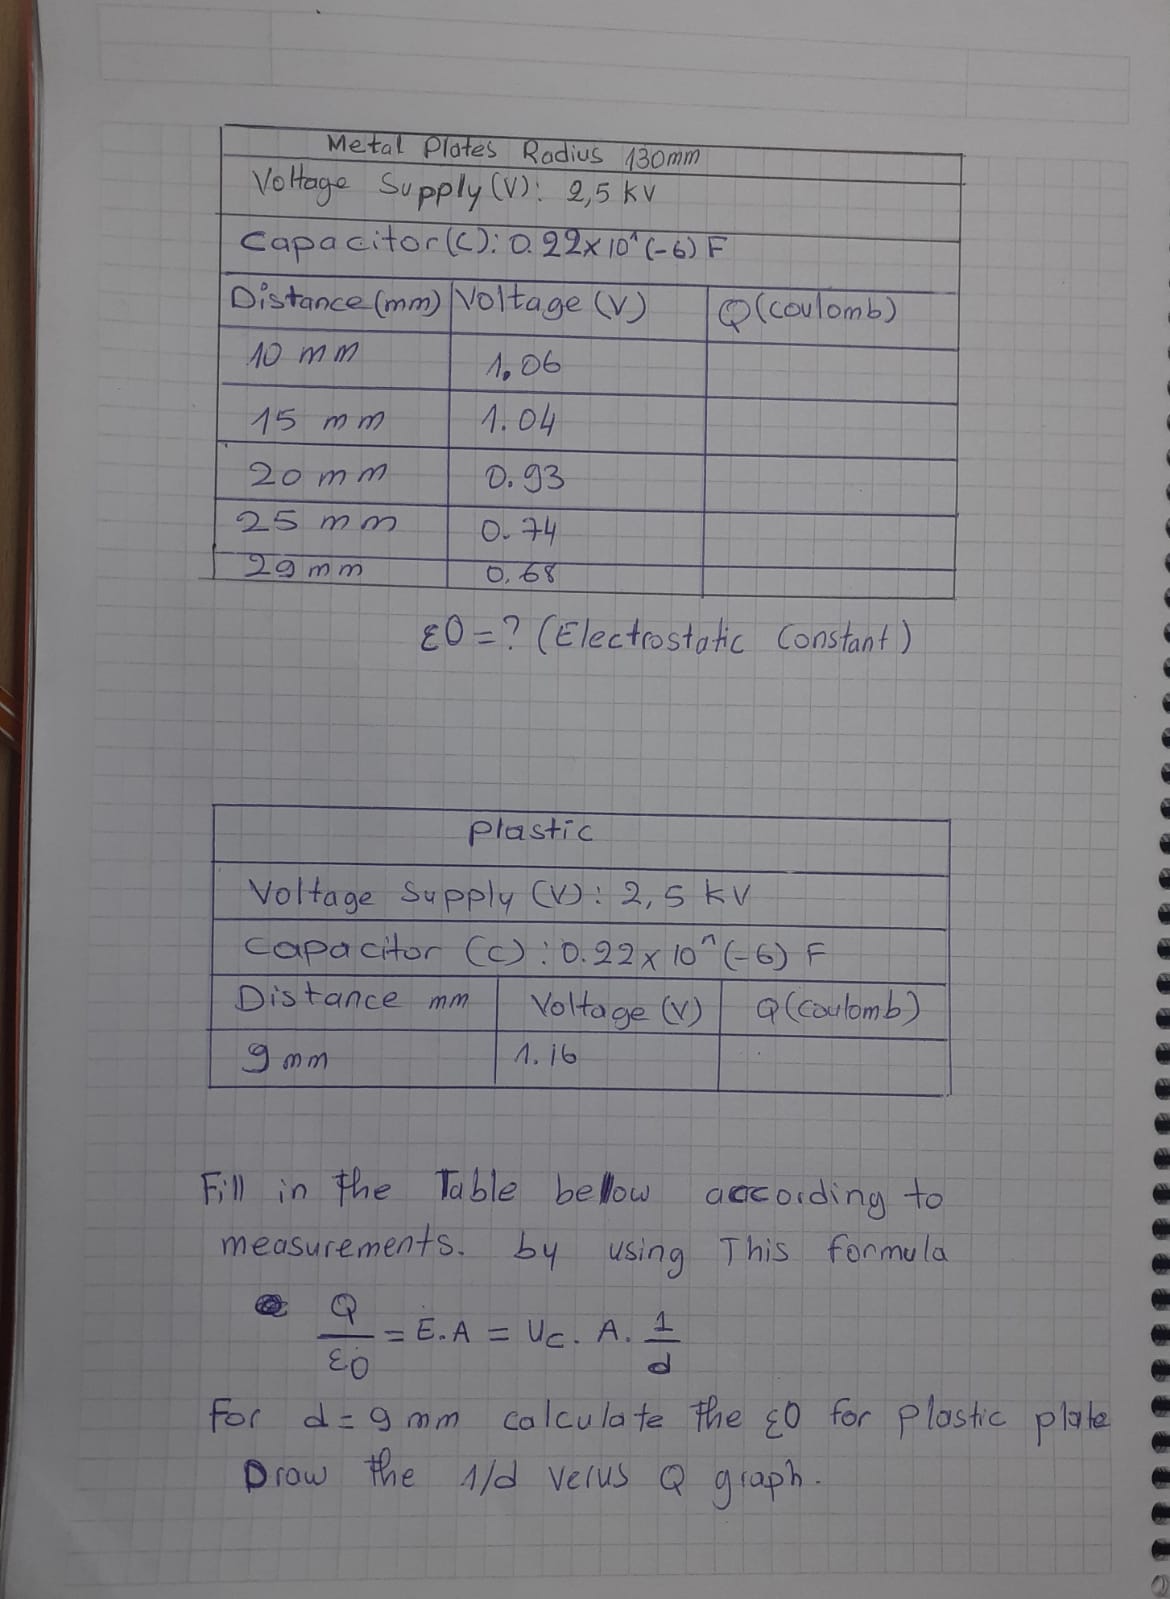 Metal Plates Radius 130mm
Voltage Supply (V): 2,5 kV
Capacitor (C): 0.22x10^(-6) F
Distance (mm) Voltage (V) Q (coulomb)
10 mm 1.06
15 mm 1.04
20 mm 0.93
25 mm 0.74
29 mm 0.68
ε0 = ? (Electrostatic Constant)
plastic
Voltage Supply (V): 2,5 kV
Capacitor (C): 0.22x10^(-6) F
Distance mm Voltage (V) Q (coulomb)
9 mm 1.16
Fill in the Table bellow according to
measurements. by using This formula
Q/ε0 = E.A = Uc. A. 1/d
For d = 9 mm calculate the ε0 for plastic plate
Draw the 1/d verus Q graph.